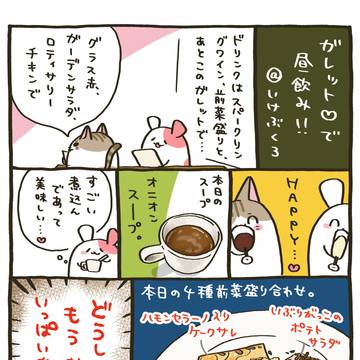 ガレット♡で
昼飲み!!
@いけぶくろ
ドリンクはスパークリン
グワイン、前菜盛りと、
あとこのガレットで…
グラス赤、
ガーデンサラダ、
ロティサリー
チキンで
HAPPY…♡
本日の
スープ
オニオン
スープ。
すごい
煮込ん
であって
美味しい…♡
本日の4種前菜盛り合わせ。
いぶりがっこの
ポテト
サラダ
ハモンセラーノ入り
ケークサレ
どうし
もう
いっぱい